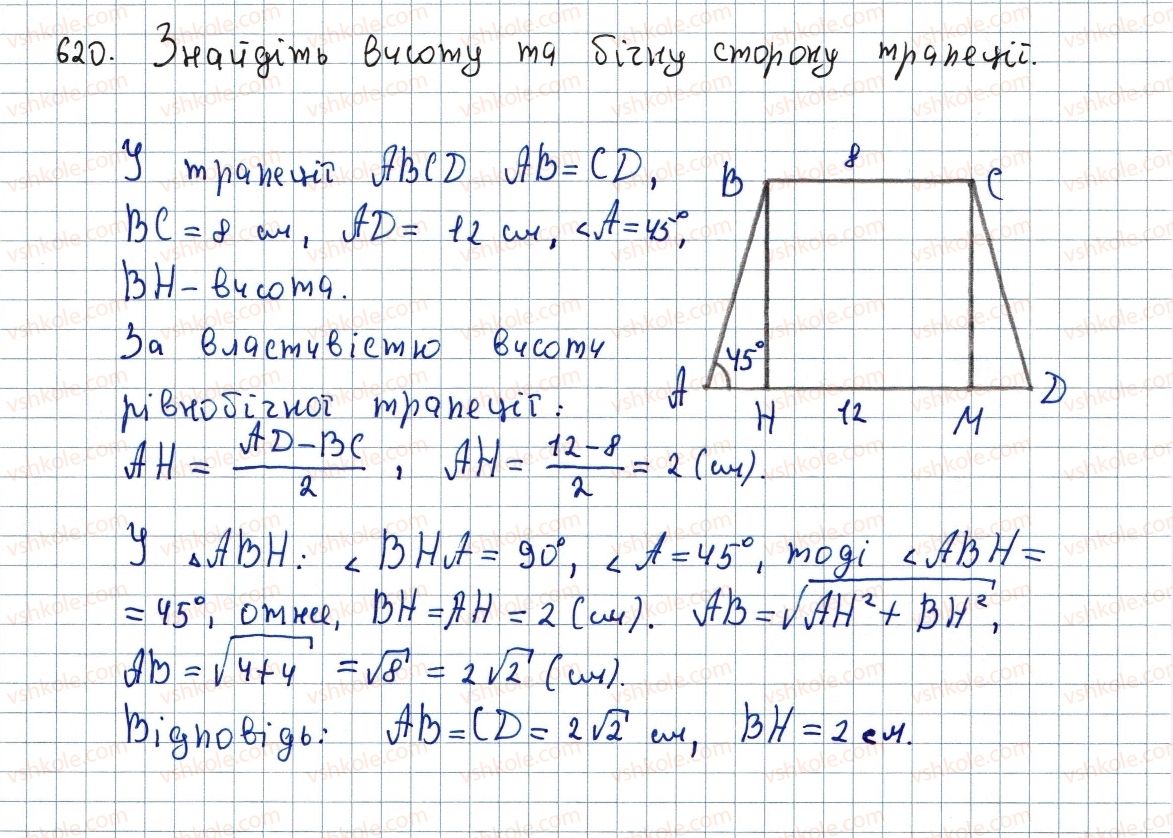 620. Знайдіть висоту та бічну сторону трапеції.
У трапеції ABCD AB = CD,
BC = 8 см, AD = 12 см, ∠A = 45°,
BH – висота.
За властивістю висоти
рівнобічної трапеції:
AH = (AD – BC)/2, AH = (12 – 8)/2 = 2 (см).
B 8 C
45°
A H 12 M D
У △ABH: ∠BHA = 90°, ∠A = 45°, тоді ∠ABH =
= 45°, отже, BH = AH = 2 (см). AB = √(AH² + BH²),
AB = √(4+4) = √8 = 2√2 (см).
Відповідь: AB = CD = 2√2 см, BH = 2 см.
vshkole.com